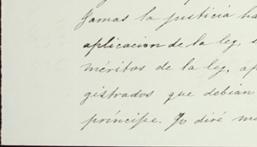 Jamas la justicia ha
aplicacion de la ley, s
méritos de la ley, ap
gistrados que debian
príncipe. Yo diré m